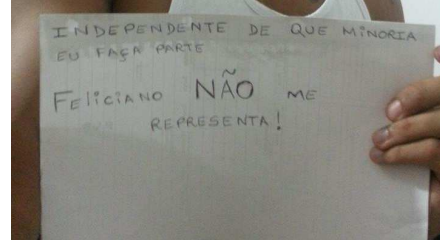 INDEPENDENTE DE QUE MINORIA
EU FAÇA PARTE
FELICIANO NÃO ME
REPRESENTA!